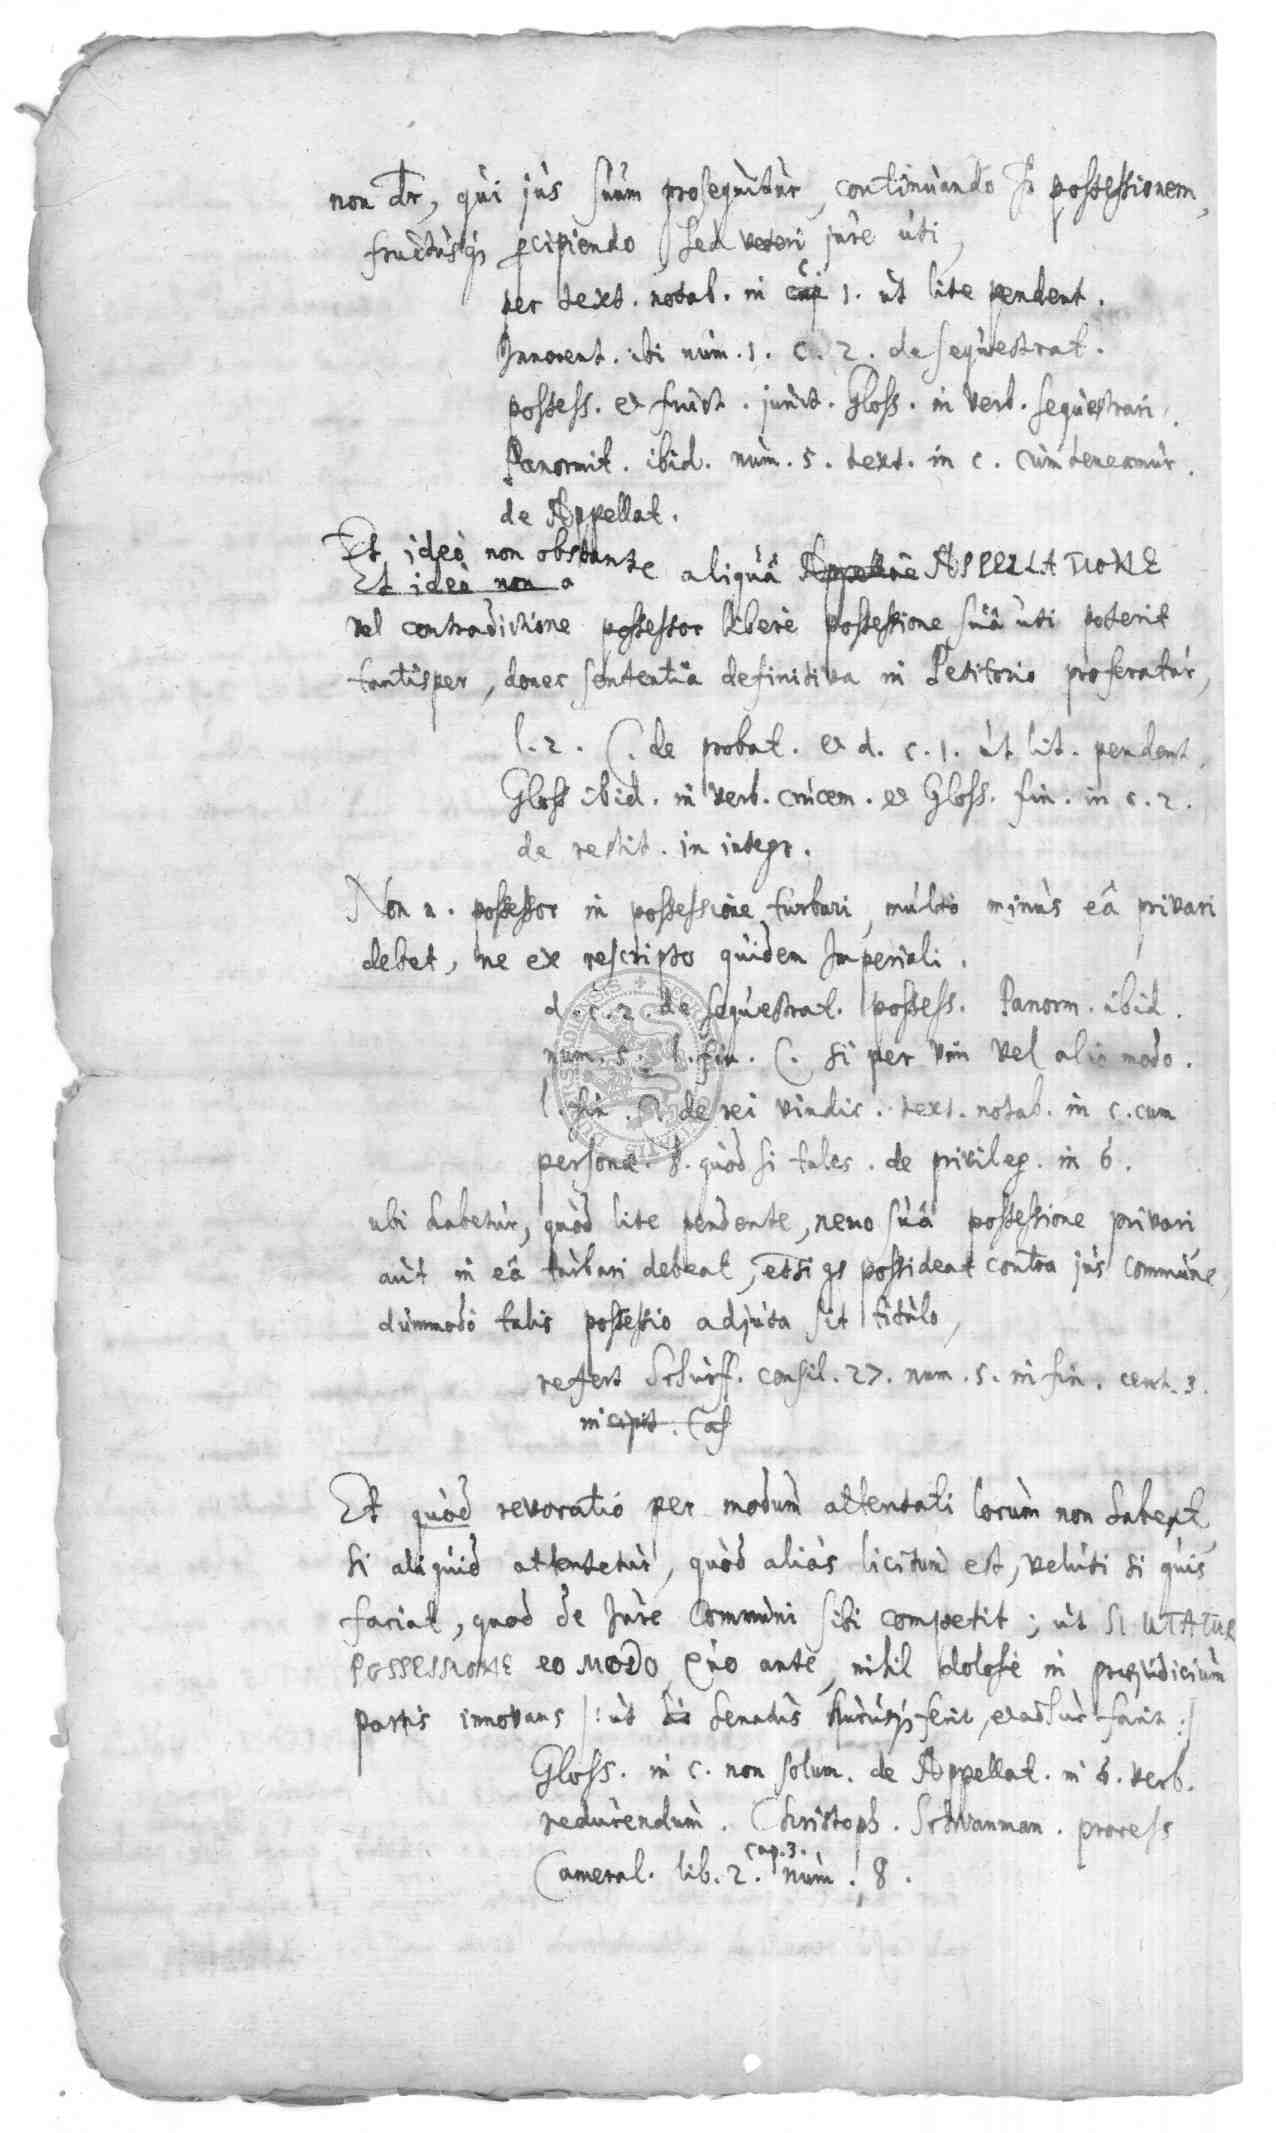 non dr, qùi jùs sùùm proseqùitùr, continùando possessionem,
frùctùsq; pcipiendo, sed veteri jùre ùti,
per text. notab. in c. 1. ùt lite pendent.
Innocent. ibi nùm. 1. c. 2. de seqùestrat.
possess. et frùct. jùnct. Gloss. in verb. seqùestrari.
Panormit. ibid. nùm. 5. text. in c. cùm teneamùr.
de Appellat.
Et ideò non obstante aliqùâ APPELLATIONE
vel contradictione possessor liberè possessione sùâ ùti poterit
tantisper, donec sententia definitiva in Petitorio proferatùr,
l. 2. C. de probat. et d. c. 1. ùt lit. pendent.
Gloss ibid. in verb. crùcem. et Gloss. fin. in c. 2.
de restit. in integr.
Non n. possessor in possessione tùrbari, mùltò minùs eâ privari
debet, ne ex rescripto qùidem Imperiali.
d. c. 2. de seqùestrat. possess. Panorm. ibid.
num. 5. l. fin. C. si per vim vel alio modo.
l. fin. C. de rei vindic. text. notab. in c. cum
personæ. §. qùòd si tales. de privileg. in 6.
ubi habetùr, qùòd lite pendente, nemo sùâ possessione privari
aùt in eâ tùrbari debeat, etsi qs possideat contra jùs commùne,
dùmmodò talis possessio adjùta sit titùlo,
refert Schùrff. consil. 27. num. 5. in fin. cent. 3.
incipit. Cas
Et qùòd revocatio per modùm attentati locùm non habeat,
si aliqùid attentetùr, qùòd aliàs licitùm est, velùti si qùis
faciat, quod de Jùre Commùni sibi competit; ùt SI UTATUR
POSSESSIONE EO MODO, Qùo ante, nihil dolosè in præjùdiciùm
partis innovans /: ùt Senatùs hùcùsq; fecit, et adhùc facit :/
Gloss. in c. non solum. de Appellat. in 6. verb.
redùcendùm. Christoph. Schwanman. process
Cameral. lib. 2. cap. 3. nùm. 8.